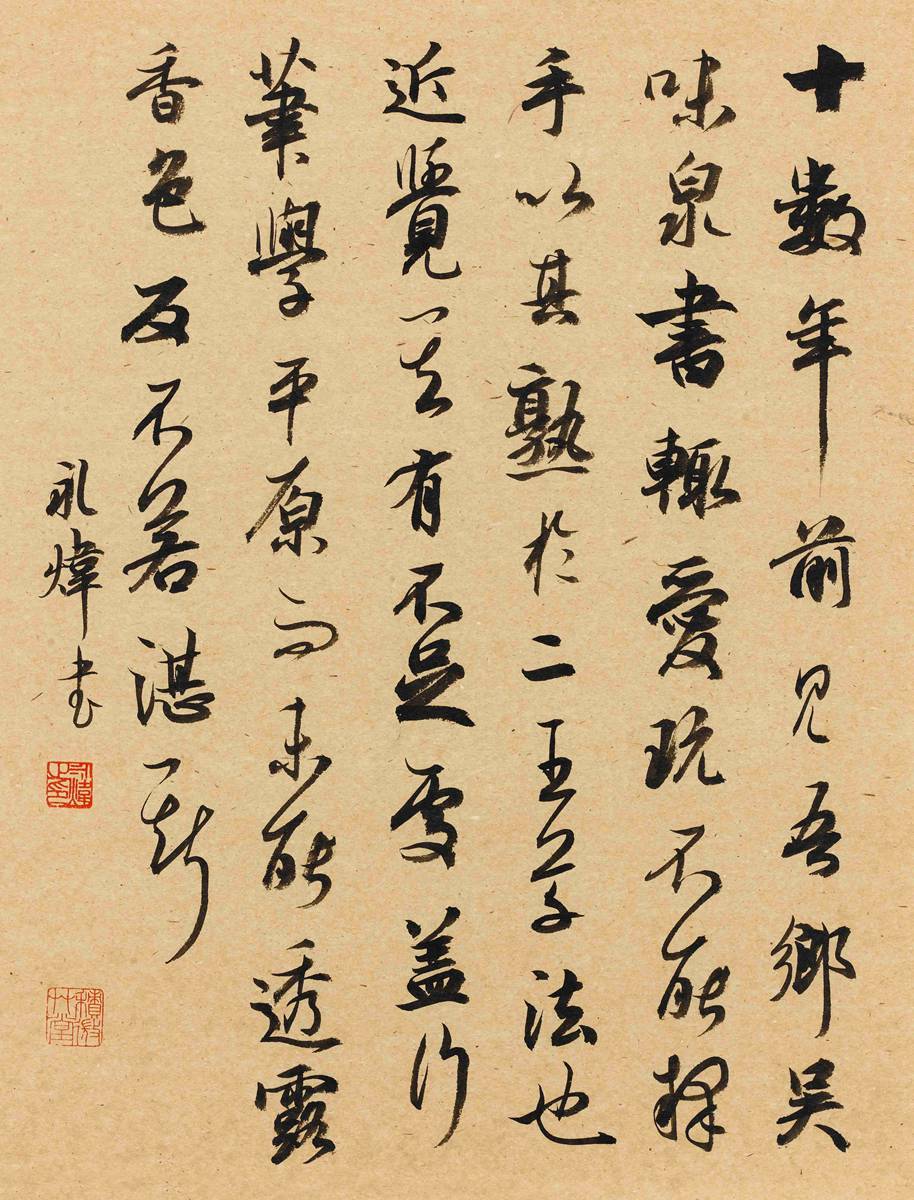 十數年前見吾鄉吴
味泉書輒愛玩不能釋
手以其熟於二王字法也
近覺差有不足處蓋行
筆學平原而未能透露
香色反不若湛
永煒书
永煒之印